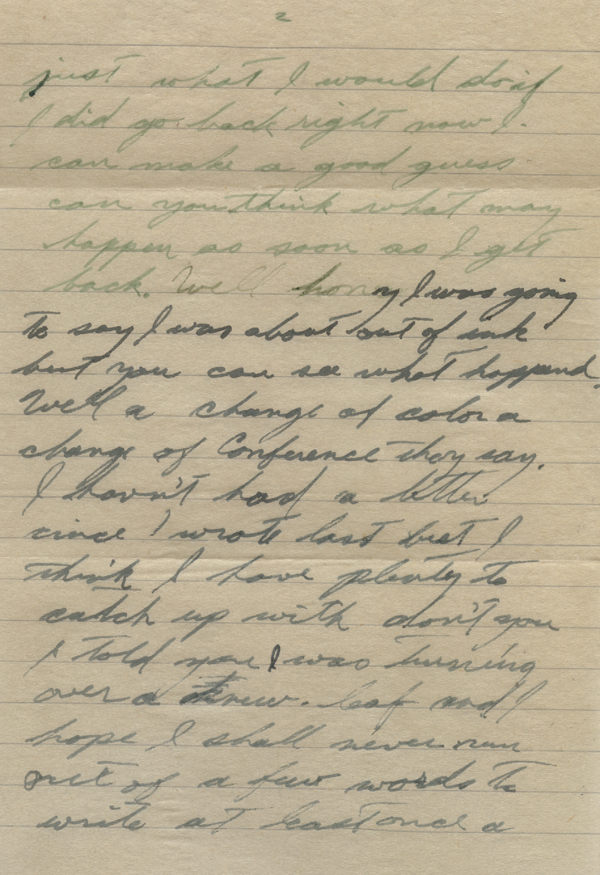 2
just what I would do if
I did go back right now I
can make a good guess
can you think what may
happen as soon as I get
back. Well hony I was going
to say I was about out of ink
but you can see what happend.
Well a change of color a
change of Conference they say.
I havn't had a letter
since I wrote last but I
think I have plenty to
catch up with don't you
I told you I was turning
over a new leaf and I
hope I shall never run
out of a few words to
write at least once a